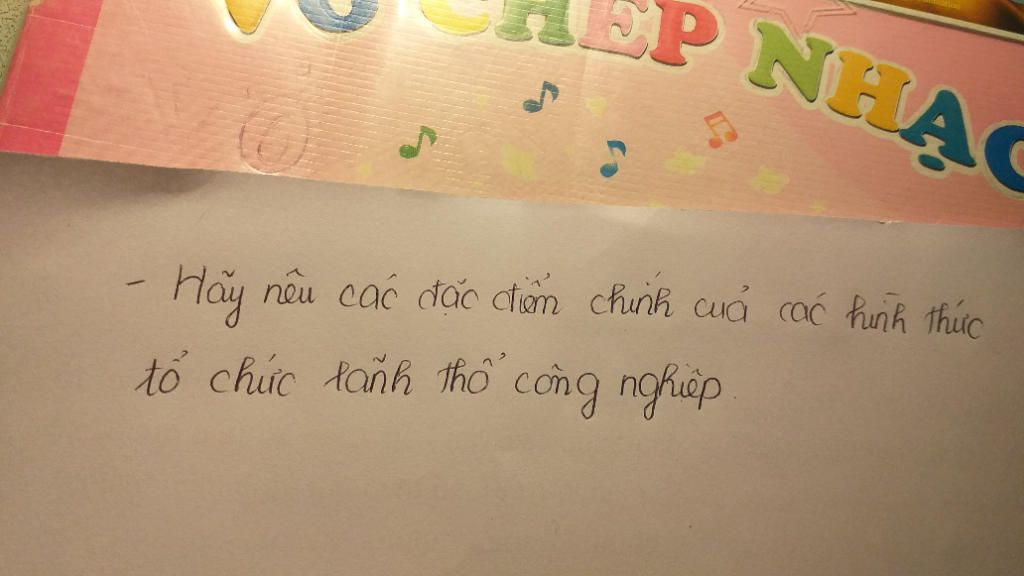 VỞ CHÉP NHẠC
- Hãy nêu các đặc điểm chính của các hình thức
tổ chức lãnh thổ công nghiệp.